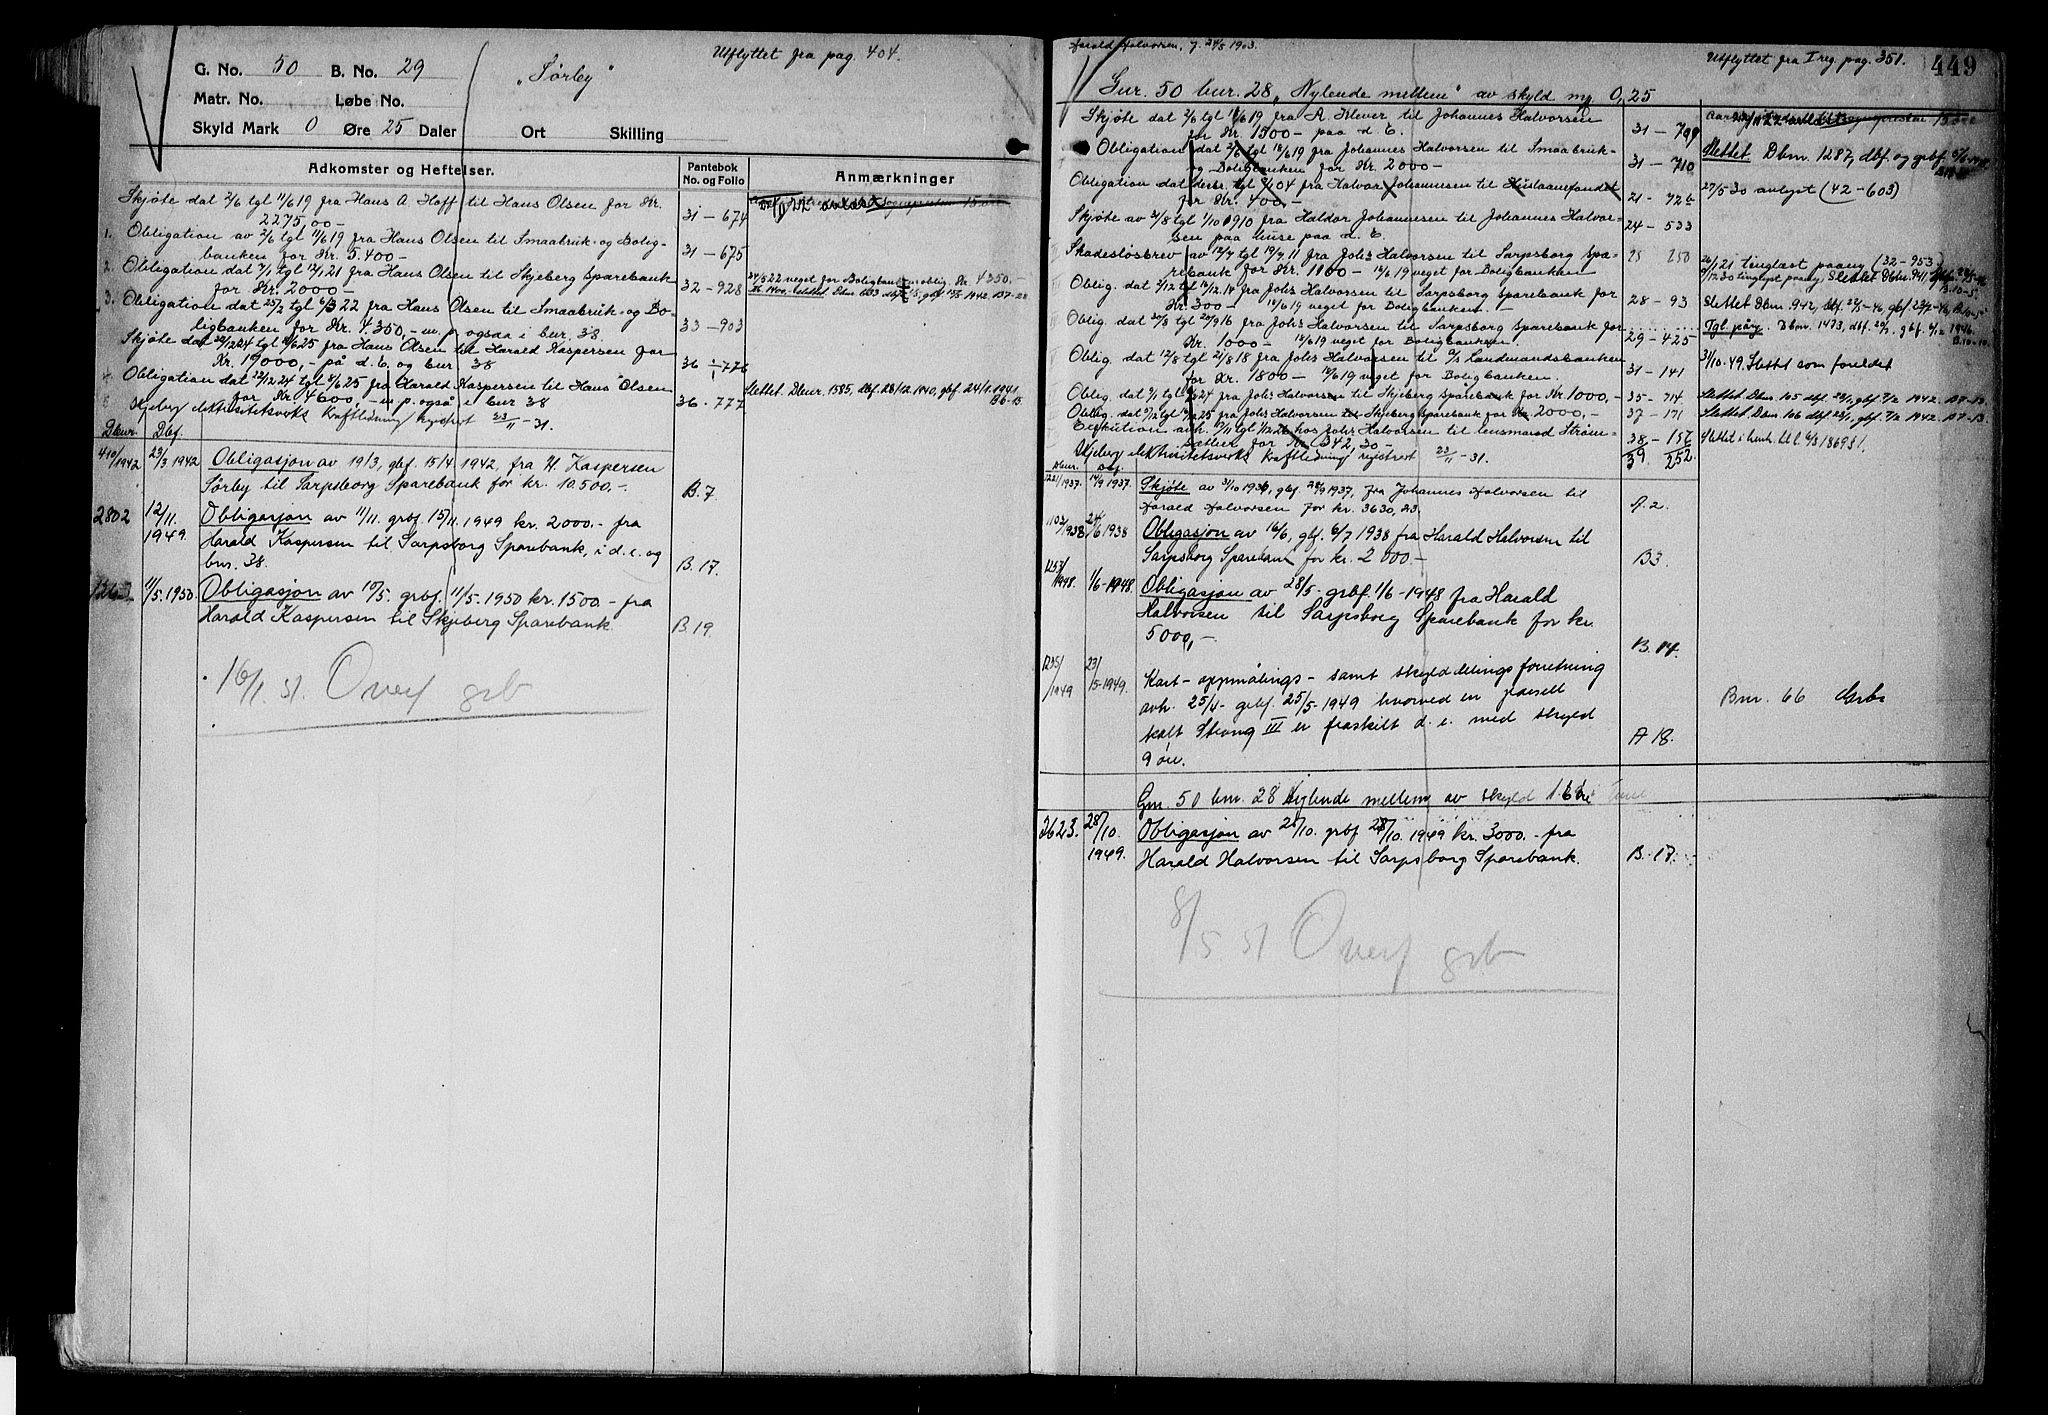 Utflyttet fra pag. 404.
G. No. 50 B. No. 29 „Sørby"
Matr. No. Løbe No.
Skyld Mark 0 Øre 25 Daler Ort Skilling
Adkomster og Heftelser.
Pantebok No. og Folio
Anmærkninger
Skjøte dat 2/6 tgl 11/6 19 fra Hans A. Hoff til Hans Olsen for Kr. 2275,00 — 31 - 674
1. Obligation av 2/6 tgl 11/6 19 fra Hans Olsen til Smaabruk- og Bolig-
banken for Kr. 5.400 - 31 - 675
2. Obligation dat 7/1 tgl 12/1 21 fra Hans Olsen til Skjeberg Sparebank
for Kr. 2000 - 32 - 928
3. Obligation dat 25/2 tgl 6/3 22 fra Hans Olsen til Smaabruk- og Bo-
ligbanken for Kr. 4350,- m. p. ogsaa i bnr. 38. 33 - 903
Skjøte dat 22/12 24 tgl 6/25 fra Hans Olsen til Harald Kaspersen for
Kr. 19000,- på d. e. og bnr 38 36 - 776
Obligation dat 22/12 24 tgl 6/25 fra Harald Kaspersen til Hans Olsen
for Kr 4600 - m. p. også i bnr 38 36 - 777
Slettet. Dbnr. 1585, dbf. 28/12. 1940, gbf. 24/1. 1941. B6-15
Skjeberg elektrisitetsverks Kraftledning registrert 23/11 - 31.
Dbnr. Dbf.
410/1942 23/3 1942 Obligasjon av 19/3, gbf. 15/4 1942, fra H. Kaspersen
Sørby til Sarpsborg Sparebank for kr. 10500,-. B. 7.
2802 12/11. 1949. Obligasjon av 11/11. grbf. 15/11. 1949 kr. 2000.- fra
Harald Kaspersen til Sarpsborg Sparebank, i d. e. og
bnr. 38. B. 17.
11/5. 1950 Obligasjon av 10/5. grbf. 11/5. 1950 kr. 1500.- fra
Harald Kaspersen til Skjeberg Sparebank. B. 19.
16/1. 51. Overf grb
Harald Halvorsen, f. 24/5 1903.
Utflyttet fra I reg. pag. 351.
449
Gnr. 50 bnr. 28 „Nylende mellem" av skyld mp 0,25
Skjøte dat 2/6 tgl 11/6 19 fra A. Klever til Johannes Halvorsen
for Kr. 1500 - paa d. E. 31 - 709
Obligation dat 2/6 tgl 18/6 19 fra Johannes Halvorsen til Smaabruk-
og Boligbanken for Kr. 2000 - 31 - 710
Slettet Dbnr. 1287, dbf. og grbf.
Obligation dat tgl 04 fra Halvor Johannesen til Huslaanefondet
for Kr. 400 - 21 - 726
27/5 30 avlyst (42 - 603)
Skjøte av 2/8 tgl 1/10 1910 fra Haldor Johannesen til Johannes Halvor-
sen paa huse paa d. E. 24 - 533
Skadesløsbrev av 12/7 tgl 19/7 11 fra Johs Halvorsen til Sarpsborg Spa-
rebank for Kr. 1100 - 12/6 19 veget for Boligbanken 25 250
Oblig. dat 2/12 tgl 16/12. 14 fra Johs Halvorsen til Sarpsborg Sparebank for
Kr. 300 - 12/6 19 veget for Boligbanken. 28 - 93
Oblig. dat 20/8 tgl 20/9 16 fra Johs Halvorsen til Sarpsborg Sparebank for
Kr. 1000 - 12/6 19 veget for Boligbanken. 29 - 425
Oblig. dat 12/8 tgl 21/8 18 fra Johs Halvorsen til A/S Landmandsbanken
for Kr. 1800 - 12/6 19 veget for Boligbanken. 31 - 141
31/10. 49. Slettet som foreldet
Oblig. dat 2/1 tgl 24 fra Johs Halvorsen til Skjeberg Sparebank for Kr. 1000,- 35 - 714
Slettet Dbnr. 105 dbf. 23/1, gbf. 7/2 1942. B7-13.
Oblig. dat 5/12 tgl 25 fra Johs Halvorsen til Skjeberg Sparebank for Kr. 2000,- 37 - 171
Slettet Dbnr. 106 dbf. 23/1, gbf. 7/2 1942. B7-13.
Exekution avh. 17/11 tgl 1/12 26 hos Johs Halvorsen til lensmand Strøm-
sæther for Kr. 342,30 - 38 - 156
Skjeberg elektrisitetsverks Kraftledning registrert 23/11 - 31. 39. 252.
Dbnr. Dbf.
14/9 1937. Skjøte av 3/10 1936, gbf. 28/9 1937, fra Johannes Halvorsen til
Harald Halvorsen for kr. 3630,23. A. 2.
1102/1938 24/6 1938 Obligasjon av 16/6, gbf. 6/7 1938 fra Harald Halvorsen til
Sarpsborg Sparebank for kr. 2000.- B3.
1257/1948. 1/6 - 1948. Obligasjon av 28/5 - grbf. 1/6 - 1948 fra Harald
Halvorsen til Sarpsborg Sparebank for kr.
5000,- B. 14.
1235/1949 23/5 - 1949. Kart - oppmålings - samt skylddelingsforretning
avh. 25/4 - grbf. 25/5 - 1949 hvorved en parsell
kalt Strang III er fraskilt d. e. med skyld
9 øre. A 18.
Bnr. 66 Grb.
Gnr 50 bnr. 28 Nylende mellem av skyld 16 øre
2623. 28/10. 1949. Obligasjon av 28/10. grbf 28/10. 1949 kr. 3000.- fra
Harald Halvorsen til Sarpsborg Sparebank. B. 17.
8/5 51 Overf grb